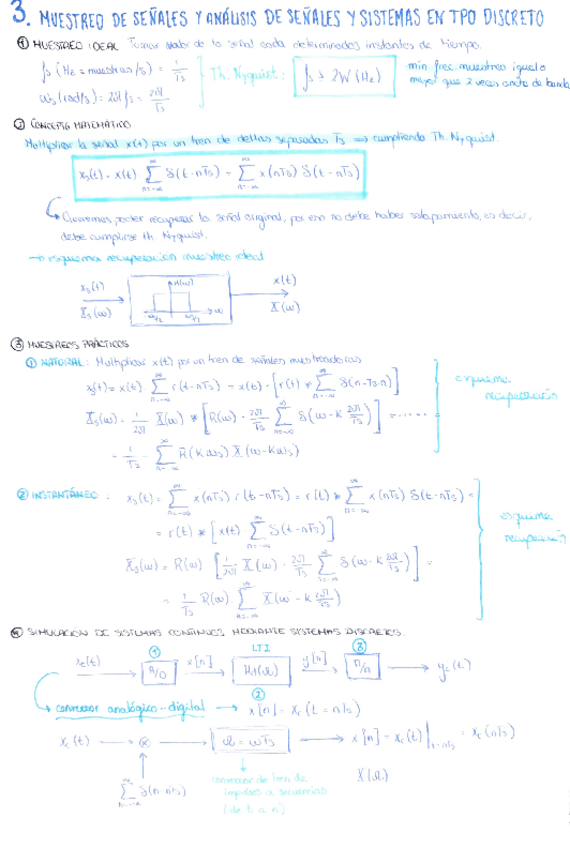 3. MUESTREO DE SEÑALES Y ANÁLISIS DE SEÑALES Y SISTEMAS EN TPO DISCRETO
① MUESTREO IDEAL Tomar valor de la señal cada determinados instantes de tiempo.
fs (Hz = muestras/s) = 1/Ts
ωs (rad/s) = 2πfs = 2π/Ts
Th. Nyquist: fs ≥ 2W (Hz)
min frec. muestreo igual o
mayor que 2 veces ancho de banda
② CONCEPTO MATEMÁTICO
Multiplicar la señal x(t) por un tren de deltas separadas Ts ⇒ cumpliendo Th. Nyquist.
xs(t) = x(t) ∑ δ(t-nTs) = ∑ x(nTs) δ(t-nTs)
n=-∞ n=-∞
Queremos poder recuperar la señal original, por eso no debe haber solapamiento, es decir,
debe cumplirse th Nyquist.
→ esquema recuperación muestreo ideal
xs(t) H(ω) x(t)
Xs(ω) ω X(ω)
③ MUESTREOS PRÁCTICOS
① NATURAL: Multiplicar x(t) por un tren de señales muestreadoras
xs(t) = x(t) ∑ r(t-nTs) = x(t) · [r(t) * ∑ δ(n-Ts·n)]
Xs(ω) = 1/2π X(ω) * [R(ω) · 2π/Ts ∑ δ(ω-k 2π/Ts)] = ......
= 1/Ts ∑ R(kωs) X(ω-kωs)
esquema
recuperación
② INSTANTÁNEO: xs(t) = ∑ x(nTs) r(t-nTs) = r(t) * ∑ x(nTs) δ(t-nTs) =
= r(t) * [x(t) ∑ δ(t-nTs)]
Xs(ω) = R(ω) [1/2π X(ω) · 2π/Ts ∑ δ(ω-k 2π/Ts)] =
= 1/Ts R(ω) ∑ X(ω-k 2π/Ts)
esquema
recuperación
④ SIMULACIÓN DE SISTEMAS CONTINUOS MEDIANTE SISTEMAS DISCRETOS.
① LTI ③
xc(t) A/D x[n] y[n] D/A → yc(t)
②
conversor analógico-digital → x[n] = xc(t=nTs)
xc(t) → ⊗ → Ω = ωTs → x[n] = xc(t)|t=nTs = xc(nTs)
conversor de tren de
impulsos a secuencias
(de t a n)
X(Ω)